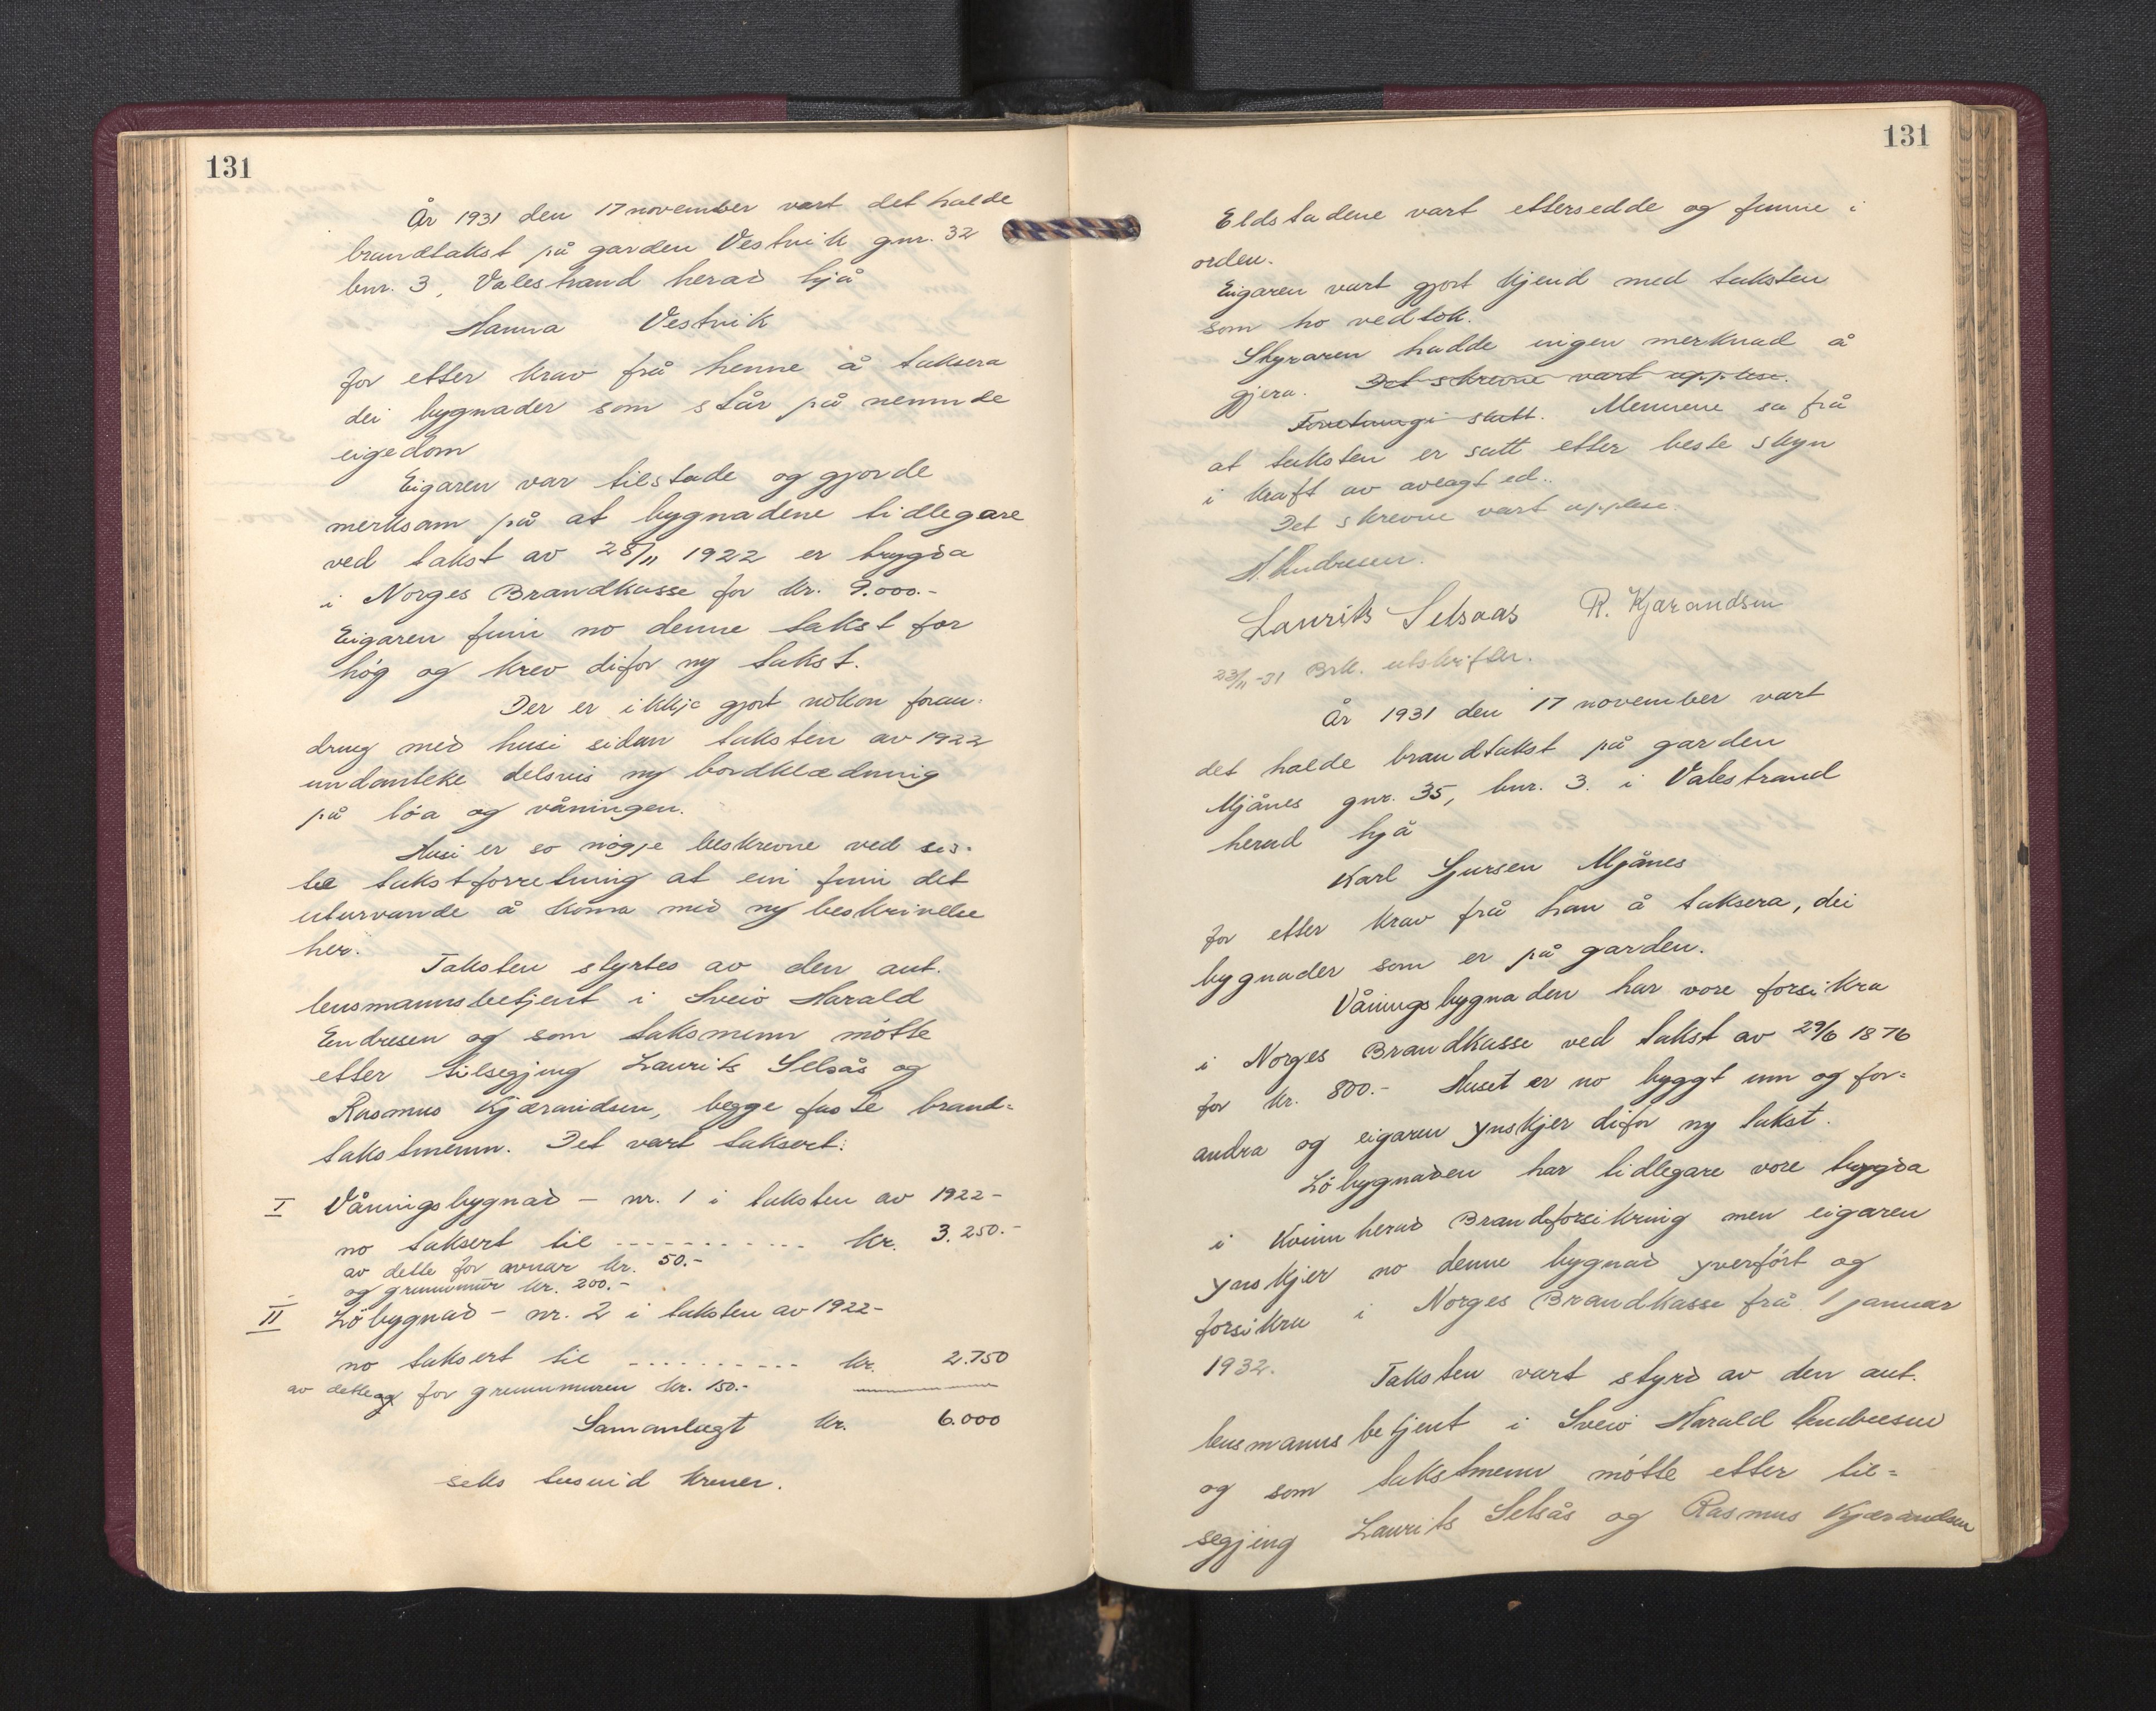 131
År 1931 den 17 november vart det halde
brandtakst på garden Vestvik gnr. 32
bnr. 3, Valestrand herad hjå
Hanna Vestvik
for etter krav frå henne å taksera
dei bygnader som står på nemnde
eigedom
Eigaren var tilstade og gjorde
merksam på at bygnadene tidlegare
ved takst av 28/11 1922 er trygda
i Norges Brandkasse for kr. 9.000.-
Eigaren finn no denne takst for
høg og krev difor ny takst.
Der er ikkje gjort nokon foran-
dring med husi sidan taksten av 1922
undanteke delsvis ny bordklædning
på løa og våningen.
Husi er so nøgje beskrevne ved sis-
te takstforretning at ein finn det
uturvande å koma med ny beskrivelse
her.
Taksten styrtes av den aut.
lensmannsbetjent i Sveio Harald
Endresen og som taksmenn møtte
etter tilsegjing Laurits Selsås og
Rasmus Kjærandsen, begge faste brand-
takstmenn. Det vart taksert:
I Våningsbygnad - nr. 1 i taksten av 1922-
no taksert til ------------ kr. 3.250.-
av dette for avnar kr. 50.-
og grunnmur kr. 200.-
II Løbygnad - nr. 2 i taksten av 1922-
no taksert til ---------- kr. 2.750
av dette og for grunnmuren kr. 150.-
Samanlagt kr. 6.000
seks tusund kroner.
131
Eldstadene vart ettersedde og funne i
orden.
Eigaren vart gjort kjend med taksten
som ho vedtok.
Styraren hadde ingen merknad å
gjera. Det skrevne vart upplese.
Forretningi slutt. Mennene sa frå
at taksten er satt etter beste skyn
i kraft av avlagt ed.
Det skrevne vart upplese.
H. Andresen.
Laurits Selsaas R. Kjærandsen
23/11-31 Brk. utskrifter.
År 1931 den 17 november vart
det halde brandtakst på garden
Mjånes gnr. 35, bnr. 3. i Valestrand
herad hjå
Karl Sjursen Mjånes
for etter krav frå han å taksera, dei
bygnader som er på garden.
Våningsbygnaden har vore forsikra
i Norges Brandkasse ved takst av 29/6 1876
for kr. 800.- Huset er no byggt um og for-
andra og eigaren ynskjer difor ny takst.
Løbygnaden har tidlegare vore trygda
i Kvinnherad Brandforsikring men eigaren
ynskjer no denne bygnad yverført og
forsikra i Norges Brandkasse frå 1 januar
1932.
Taksten vart styrd av den aut.
lensmannsbetjent i Sveio Harald Andresen
og som takstmenn møtte etter til-
segjing Laurits Selsås og Rasmus Kjærandsen